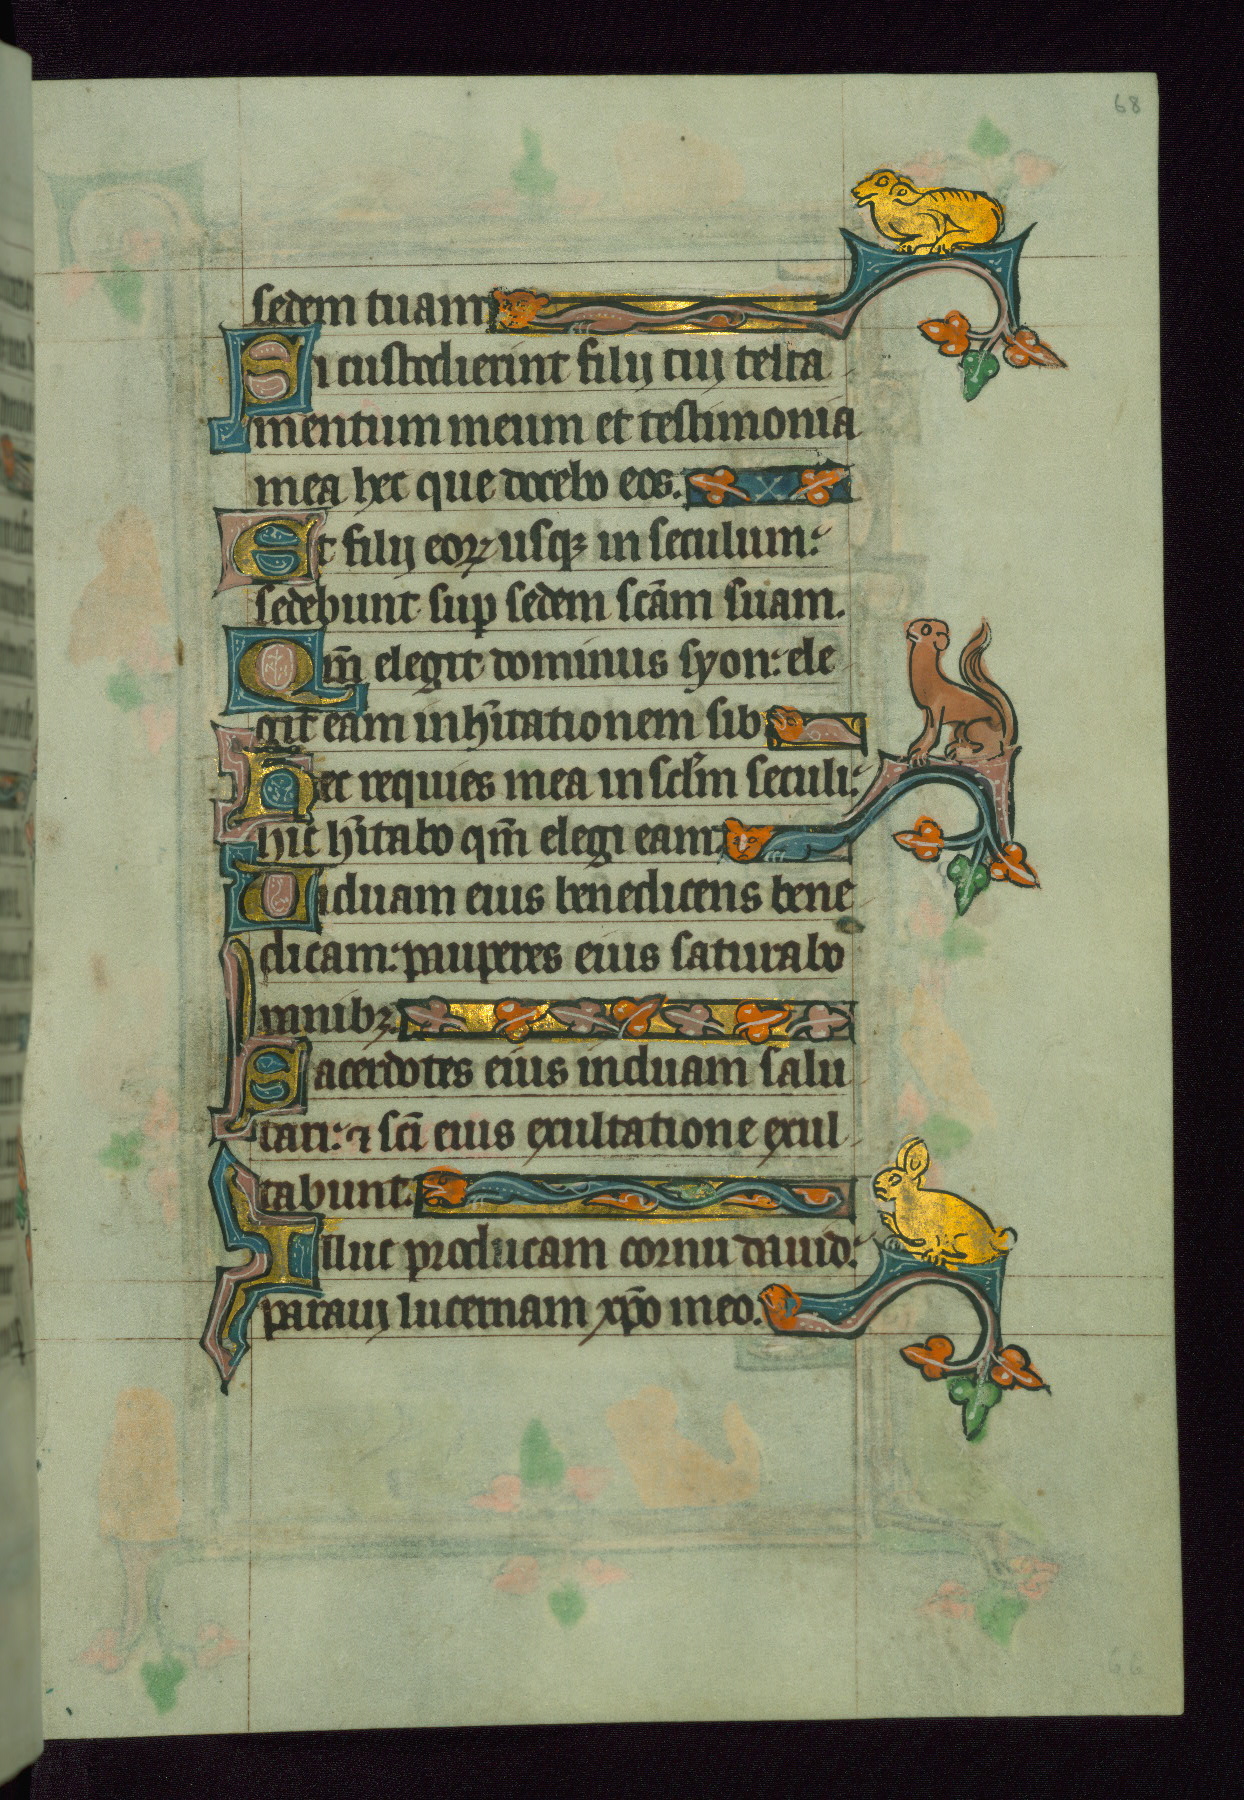 68
sedem tuam
Si custodierint filij tui testa
mentum meum et testimonia
mea hec que docebo eos.
Et filij eoꝝ usqꝫ in seculum:
sedebunt sup sedem scãm suam.
Qm̃ elegit dominus syon: ele
git eam in hĩtationem sib
Hec requies mea in sclm̃ seculi:
hic hĩtabo qm̃ elegi eam
Uiduam eius benedicens bene
dicam: pauperes eius saturabo
panibꝫ
Sacerdotes eius induam salu
tari: ⁊ scĩ eius exultatione exul
tabunt.
Illuc producam cornu dauid:
paraui lucernam xp̃o meo.
66